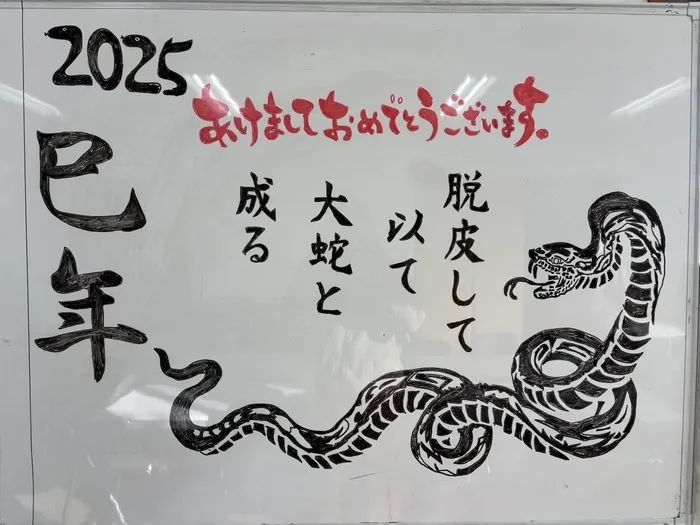 2025
巳年
あけましておめでとうございます。
脱皮して
以て
大蛇と
成る